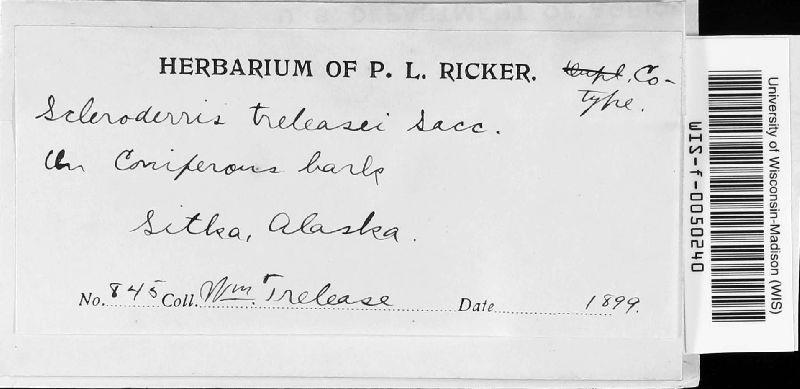 HERBARIUM OF P. L. RICKER.
Co-
type.
Scleroderris treleasei Sacc.
On Coniferous bark
Sitka, Alaska.
No. 845 Coll. Wm. Trelease Date 1899.
University of Wisconsin-Madison (WIS)
WIS-f-0050240